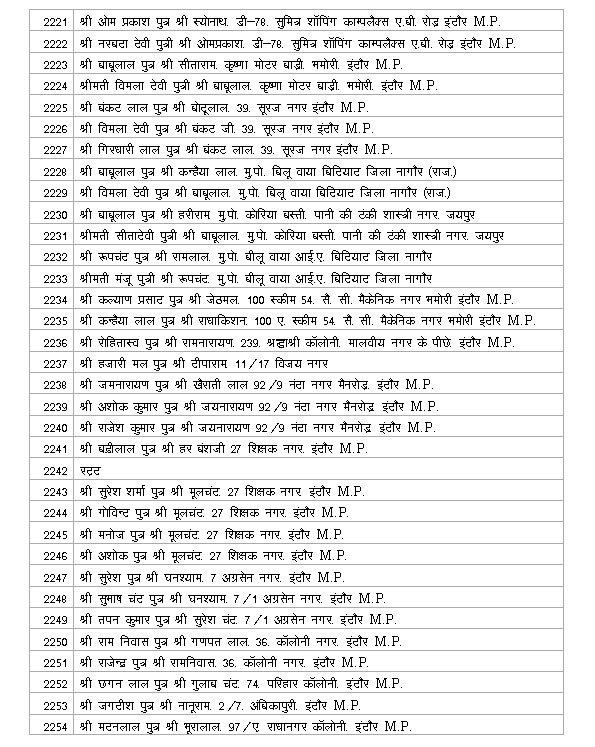 2221 श्री ओम प्रकाश पुत्र श्री स्योनाथ. डी-78. सुमित्र शॉपिंग काम्पलैक्स ए.बी. रोड़ इंटौर M.P.
2222 श्री नरबटा टेवी पुत्री श्री ओमप्रकाश. डी-78. सुमित्र शॉपिंग काम्पलैक्स ए.बी. रोड़ इंटौर M.P.
2223 श्री बाबूलाल पुत्र श्री सीताराम. कृष्णा मोटर बाड़ी. ममोरी. इंटौर M.P.
2224 श्रीमती विमला टेवी पुत्री श्री बाबूलाल. कृष्णा मोटर बाड़ी. ममोरी. इंटौर M.P.
2225 श्री बंकट लाल पुत्र श्री छोटूलाल. 39. सूरज नगर इंटौर M.P.
2226 श्री विमला टेवी पुत्र श्री बंकट जी. 39. सूरज नगर इंटौर M.P.
2227 श्री गिरधारी लाल पुत्र श्री बंकट लाल. 39. सूरज नगर इंटौर M.P.
2228 श्री बाबूलाल पुत्र श्री कन्हैया लाल. मु.पो. बिलू वाया बिटियाट जिला नागौर (राज.)
2229 श्री विमला टेवी पुत्र श्री बाबूलाल. मु.पो. बिलू वाया बिटियाट जिला नागौर (राज.)
2230 श्री बाबूलाल पुत्र श्री हरीराम मु.पो. कोरिया बस्ती. पानी की टंकी शास्त्री नगर. जयपुर
2231 श्रीमती सीताटेवी पुत्री श्री बाबूलाल. मु.पो. कोरिया बस्ती. पानी की टंकी शास्त्री नगर. जयपुर
2232 श्री रूपचंट पुत्र श्री रामलाल. मु.पो. बीलू वाया आई.ए. बिटियाट जिला नागौर
2233 श्रीमती मंजू पुत्री श्री रूपचंट. मु.पो. बीलू वाया आई.ए. बिटियाट जिला नागौर
2234 श्री कल्याण प्रसाट पुत्र श्री जेठमल. 100 स्कीम 54. सै. सी. मैकेनिक नगर ममोरी इंटौर M.P.
2235 श्री कन्हैया लाल पुत्र श्री राधाकिशन. 100 ए. स्कीम 54. सै. सी. मैकेनिक नगर ममोरी इंटौर M.P.
2236 श्री रोहितास्व पुत्र श्री रामनारायण. 239. श्रद्धाश्री कॉलोनी. मालवीय नगर के पीछे. इंटौर M.P.
2237 श्री हजारी मल पुत्र श्री टीपाराम. 11/17 विजय नगर
2238 श्री जमनारायण पुत्र श्री खैराती लाल 92/9 नंटा नगर मैनरोड़. इंटौर M.P.
2239 श्री अशोक कुमार पुत्र श्री जयनारायण 92/9 नंटा नगर मैनरोड़. इंटौर M.P.
2240 श्री राजेश कुमार पुत्र श्री जयनारायण 92/9 नंटा नगर मैनरोड़. इंटौर M.P.
2241 श्री बद्रीलाल पुत्र श्री हर बंशजी 27 शिक्षक नगर. इंटौर M.P.
2242 रटट
2243 श्री सुरेश शर्मा पुत्र श्री मूलचंट. 27 शिक्षक नगर. इंटौर M.P.
2244 श्री गोविन्ट पुत्र श्री मूलचंट. 27 शिक्षक नगर. इंटौर M.P.
2245 श्री मनोज पुत्र श्री मूलचंट. 27 शिक्षक नगर. इंटौर M.P.
2246 श्री अशोक पुत्र श्री मूलचंट. 27 शिक्षक नगर. इंटौर M.P.
2247 श्री सुरेश पुत्र श्री घनश्याम. 7 अग्रसेन नगर. इंटौर M.P.
2248 श्री सुभाष चंट पुत्र श्री घनश्याम. 7/1 अग्रसेन नगर. इंटौर M.P.
2249 श्री तपन कुमार पुत्र श्री सुरेश चंट. 7/1 अग्रसेन नगर. इंटौर M.P.
2250 श्री राम निवास पुत्र श्री गणपत लाल. 36. कॉलोनी नगर. इंटौर M.P.
2251 श्री राजेन्द्र पुत्र श्री रामनिवास. 36. कॉलोनी नगर. इंटौर M.P.
2252 श्री छगन लाल पुत्र श्री गुलाब चंट. 74. परिहार कॉलोनी. इंटौर M.P.
2253 श्री जगटीश पुत्र श्री नानूराम. 2/7. अंबिकापुरी. इंटौर M.P.
2254 श्री मटनलाल पुत्र श्री भूरालाल. 97/ए. राधानगर कॉलोनी. इंटौर M.P.